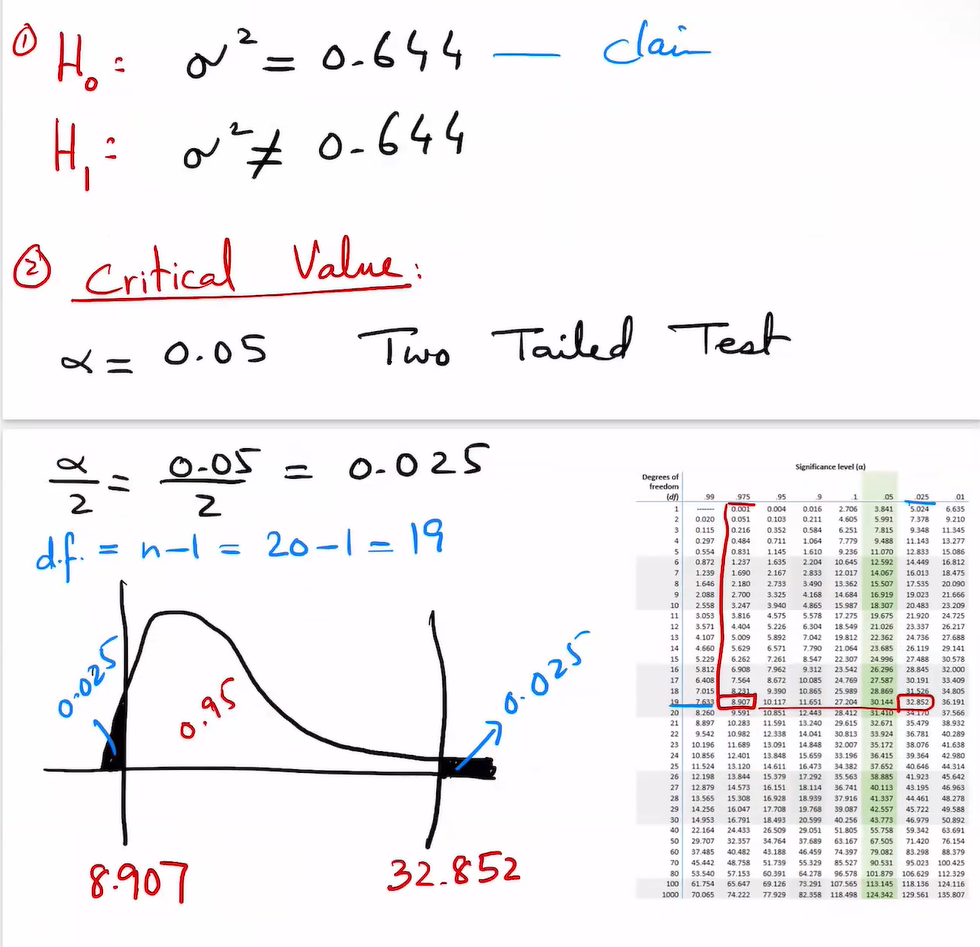 ① H₀: σ² = 0.644 — claim
H₁: σ² ≠ 0.644
② Critical Value:
α = 0.05 Two Tailed Test
α/2 = 0.05/2 = 0.025
d.f. = n-1 = 20-1 = 19
0.025
0.95
0.025
8.907
32.852
Significance level (α)
Degrees of
freedom
(df) .99 .975 .95 .9 .1 .05 .025 .01
1 ------ 0.001 0.004 0.016 2.706 3.841 5.024 6.635
2 0.020 0.051 0.103 0.211 4.605 5.991 7.378 9.210
3 0.115 0.216 0.352 0.584 6.251 7.815 9.348 11.345
4 0.297 0.484 0.711 1.064 7.779 9.488 11.143 13.277
5 0.554 0.831 1.145 1.610 9.236 11.070 12.833 15.086
6 0.872 1.237 1.635 2.204 10.645 12.592 14.449 16.812
7 1.239 1.690 2.167 2.833 12.017 14.067 16.013 18.475
8 1.646 2.180 2.733 3.490 13.362 15.507 17.535 20.090
9 2.088 2.700 3.325 4.168 14.684 16.919 19.023 21.666
10 2.558 3.247 3.940 4.865 15.987 18.307 20.483 23.209
11 3.053 3.816 4.575 5.578 17.275 19.675 21.920 24.725
12 3.571 4.404 5.226 6.304 18.549 21.026 23.337 26.217
13 4.107 5.009 5.892 7.042 19.812 22.362 24.736 27.688
14 4.660 5.629 6.571 7.790 21.064 23.685 26.119 29.141
15 5.229 6.262 7.261 8.547 22.307 24.996 27.488 30.578
16 5.812 6.908 7.962 9.312 23.542 26.296 28.845 32.000
17 6.408 7.564 8.672 10.085 24.769 27.587 30.191 33.409
18 7.015 8.231 9.390 10.865 25.989 28.869 31.526 34.805
19 7.633 8.907 10.117 11.651 27.204 30.144 32.852 36.191
20 8.260 9.591 10.851 12.443 28.412 31.410 34.170 37.566
21 8.897 10.283 11.591 13.240 29.615 32.671 35.479 38.932
22 9.542 10.982 12.338 14.041 30.813 33.924 36.781 40.289
23 10.196 11.689 13.091 14.848 32.007 35.172 38.076 41.638
24 10.856 12.401 13.848 15.659 33.196 36.415 39.364 42.980
25 11.524 13.120 14.611 16.473 34.382 37.652 40.646 44.314
26 12.198 13.844 15.379 17.292 35.563 38.885 41.923 45.642
27 12.879 14.573 16.151 18.114 36.741 40.113 43.195 46.963
28 13.565 15.308 16.928 18.939 37.916 41.337 44.461 48.278
29 14.256 16.047 17.708 19.768 39.087 42.557 45.722 49.588
30 14.953 16.791 18.493 20.599 40.256 43.773 46.979 50.892
40 22.164 24.433 26.509 29.051 51.805 55.758 59.342 63.691
50 29.707 32.357 34.764 37.689 63.167 67.505 71.420 76.154
60 37.485 40.482 43.188 46.459 74.397 79.082 83.298 88.379
70 45.442 48.758 51.739 55.329 85.527 90.531 95.023 100.425
80 53.540 57.153 60.391 64.278 96.578 101.879 106.629 112.329
100 61.754 65.647 69.126 73.291 107.565 113.145 118.136 124.116
1000 70.065 74.222 77.929 82.358 118.498 124.342 129.561 135.807